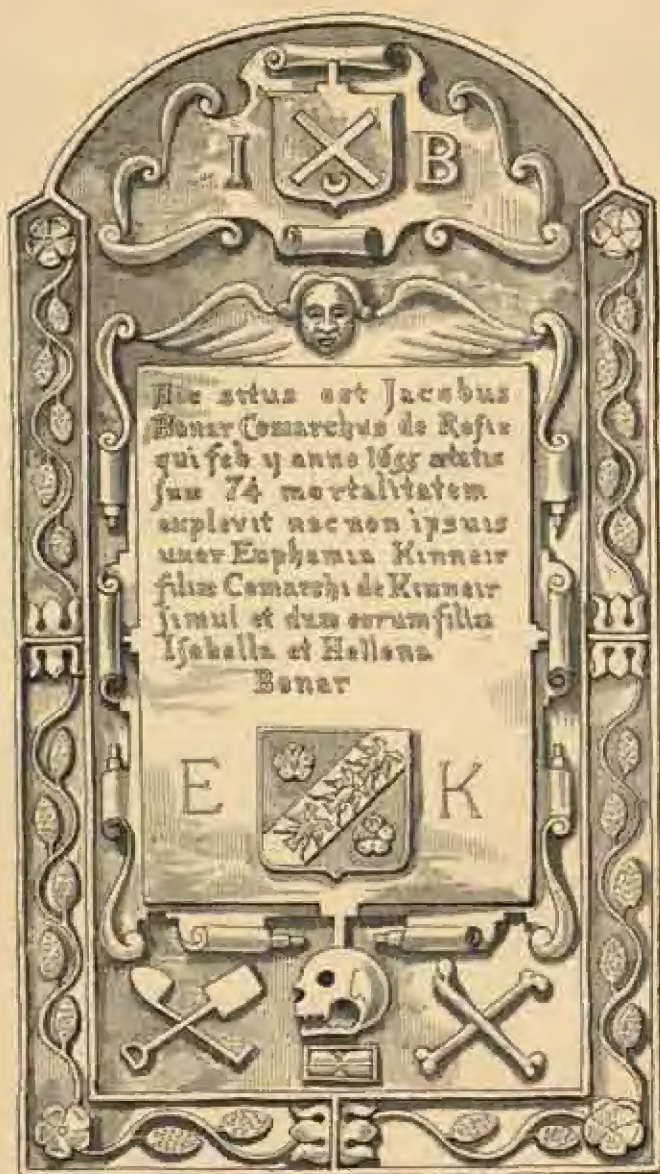 I B
Hic situs est Jacobus
Bonar Comarchus de Rosie
qui feb 1j anno 1655 ætatis
suæ 74 mortalitatem
explevit nec non ipsuis
uxor Euphemia Kinneir
filia Comarchi de Kinneir
simul et duæ eorum filiæ
Isabella et Hellena
Bonar
E K